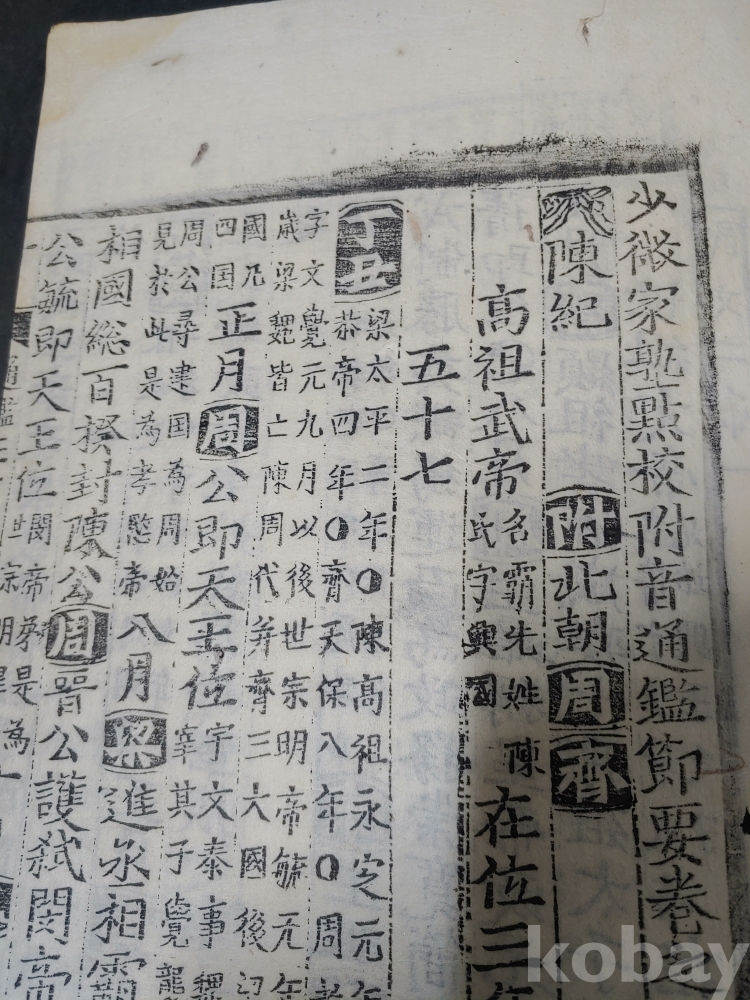 少微家塾點校附音通鑑節要卷之
陳紀 附 北朝 周 齊
高祖武帝 名霸先姓陳
氏字興國 在位三年
五十七
丁丑 梁太平二年○陳高祖永定元年
恭帝四年○齊天保八年○周孝
字文覺元九月以後世宗明帝毓元年
歲梁魏皆亡陳周代并齊三大國後
國凡
四国 正月 周 公即天王位 宇文泰事魏
宰其子覺龍
周公尋建国為周始
見於此是為孝愍帝 八月 梁 進丞相霸
相國総百揆封陳公 周 晉公護弒閔帝
公毓即天王位 閔帝弟是為
世宗明
通鑑
kobay